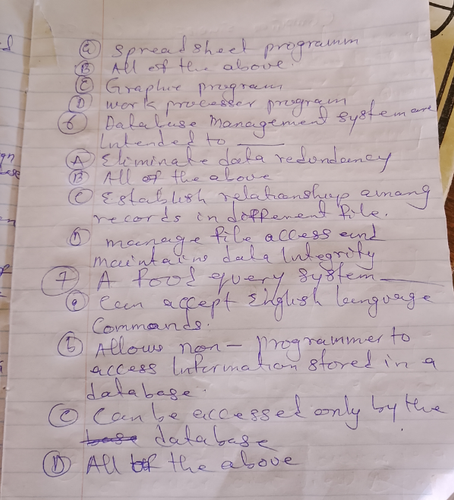 (a) Spreadsheet programm
(B) All of the above.
(C) Graphic program
(D) Work processer program
(6) Database management system are
intended to ____
(A) Eliminate data redundancy
(B) All of the above
(C) Establish relationship among
records in different file.
(D) manage file access and
maintains data Integrity
(7) A food query system ____
(a) Can accept English language
Commands.
(b) Allows non- programmer to
access Information stored in a
database.
(C) Can be accessed only by the
database
(D) All of the above